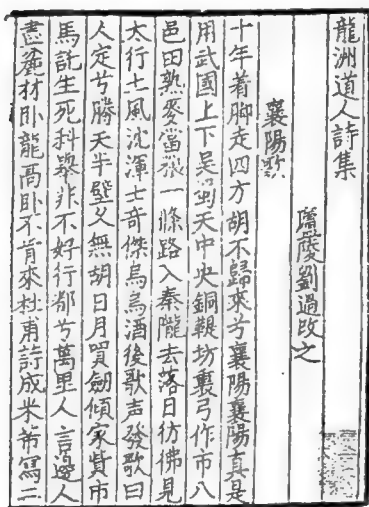 龍洲道人詩集
廬陵劉過改之
襄陽歌
十年着脚走四方胡不歸來兮襄陽襄陽真是
用武國上下吳蜀天中央銅鞮坊裏弓作市八
邑田熟麥當粮一條路入秦隴去落日彷彿見
太行土風沈渾士奇傑烏烏酒後歌声發歌曰
人定兮勝天半壁乂無胡日月買劒傾家貲市
馬託生死科舉非不好行都兮萬里人言邊人
盡麄材卧龍高卧不肯來杜甫詩成米芾寫二